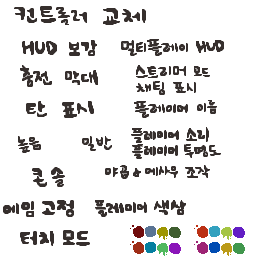 컨트롤러 교체
HUD 보강 멀티플레이 HUD
충전 막대 스트리머 모드
채팅 표시
탄 표시 플레이어 이름
높음 일반 플레이어 소리
플레이어 투명도
콘솔 야곱 & 에사우 조작
에임 고정 플레이어 색상
터치 모드